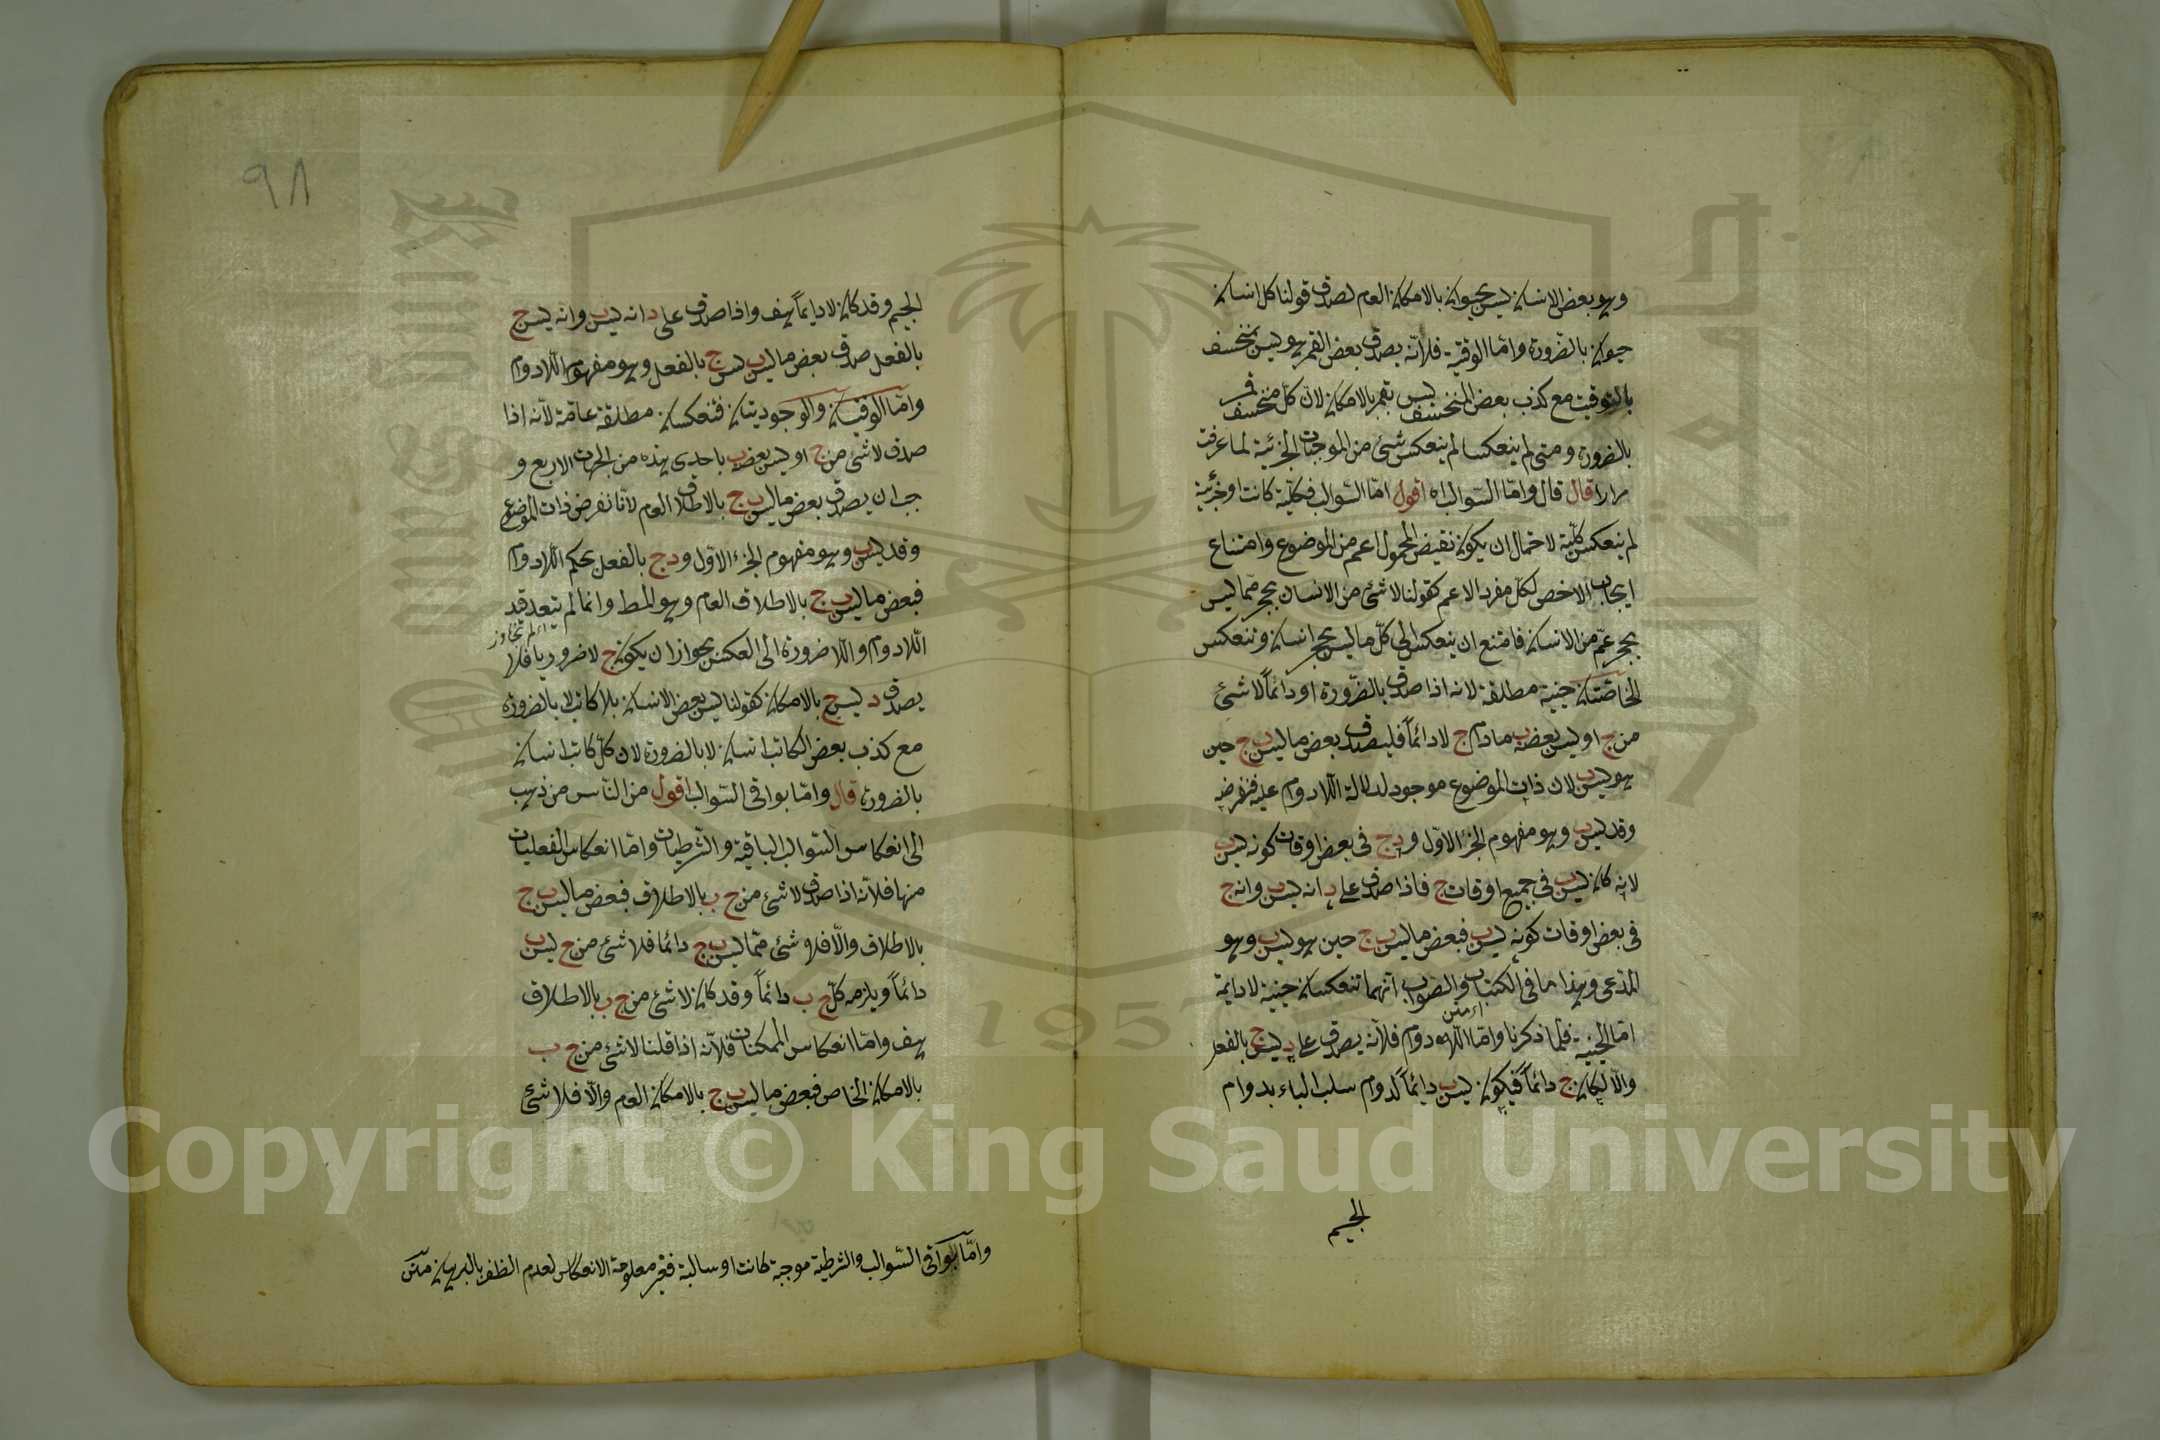 وهو بعض الانسان ليس بحيوان بالامكان العام لصدق قولنا كل انسان
حيوان بالضرورة وامّا الوقتية فلانّه يصدق بعض القمر هو ليس بمنخسف
بالتوقيت مع كذب بعض المنخسف ليس بقمر بالامكان لان كلّ منخسف قمر
بالضرورة ومتى لم ينعكسا لم ينعكس شئ من الموجبات الجزئية لما عرفت
مرارا قال قال وامّا السّوالب اه اقول امّا السّوالب فكليّة كانت او جزئية
لم ينعكس كليّة لاحتمال ان يكون نقيض المحمول اعم من الموضوع وامتناع
ايجاب الاخص لكلّ مفرد الاعم كقولنا لا شئ من الانسان بحجر ممّا ليس
بحجر عمّ من الانسان فامتنع ان ينعكس الى كلّ ما ليس بحجر انسان وتنعكس
الخاصّتان حينية مطلقة لانه اذا صدق بالضّرورة او دائماً لا شئ
من ج او ليس بعضه ب مادام ج لا دائماً فليصدق بعض ما ليس ب ج حين
هو ليس ب لان ذات الموضوع موجود لدلالة اللّادوام عليه فنفرضه
وقد ليس ب وهو مفهوم الجزء الاوّل ود ج فى بعض اوقات كونه ليس ب
لانه كان ليس ب فى جميع اوقات ج فاذا صدق على د انه ليس ب وانه ج
فى بعض اوقات كونه ليس ب فبعض ما ليس ب ج حين هو ليس ب وهو
المدّعى وهذا ما فى الكتاب والصّواب انّهما تنعكسان حينية لا دايمة
امّا الحينية فلما ذكرنا وامّا اللّادوام فلانّه يصدق على د ليس ج بالفعل
والّا لكان ج دائماً فيكون ليس ب دايماً لدوام سلب الباء بدوام
الجيم
٩٨
الجيم وقد كان لا دايماً هف واذا صدق على د انه ليس ب وانه ليس ج
بالفعل صدق بعض ما ليس ب ليس ج بالفعل وهو مفهوم اللّادوام
وامّا الوقتيتان والوجوديتان فتنعكسان مطلقة عامّة لانّه اذا
صدق لا شئ من ج او ليس بعضه ب باحدى هذه من الجهات الاربع و
جب ان يصدق بعض ما ليس ب ج بالاطلاق العام لانّا نفرض ذات الموضوع
وقد ليس ب وهو مفهوم الجزء الاوّل ود ج بالفعل بحكم اللّادوام
فبعض ما ليس ب ج بالاطلاق العام وهو المط وانما لم يتعد قيد
اى لم تجاوز
اللّادوام واللّاضرورة الى العكس بجواز ان يكون ج لا ضروريا فلا
يصدق د ليس ج بالامكان كقولنا ليس بعض الانسان بلا كاتب لا بالضرورة
مع كذب بعض الكاتب انسان لا بالضرورة لان كلّ كاتب انسان
بالضرورة قال وامّا بواقى السّوالب اقول من النّاس من ذهب
الى انعكاس السّوالب الباقية والشّرطيات وامّا انعكاس الفعليات
منها فلانّه اذا صدق لا شئ من ج ب بالاطلاق فبعض ما ليس ب ج
بالاطلاق والّا فلا شئ ممّا ليس ب ج دائما فلا شئ من ج ليس ب
دائماً ويلزمه كلّ ج ب دائماً وقد كان لا شئ من ج ب بالاطلاق
هف وامّا انعكاس الممكنات فلانّه اذا قلنا لا شئ من ج ب
بالامكان الخاص فبعض ما ليس ب ج بالامكان العام والّا فلا شئ
وامّا بواقى السّوالب والشرطية موجبة كانت او سالبة فغير معلومة الانعكاس لعدم الظفر بالبرهان متن
Copyright © King Saud University
1957